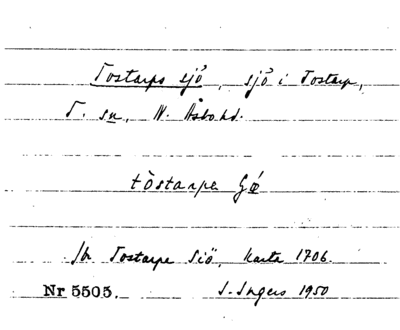 Tostarps sjö, sjö i Tostarp,
T. sn, N. Åsbo hd.
tòstarpa šø
Jb Tostarpe Siö, karta 1706.
Nr 5505. I. Ingers 1950